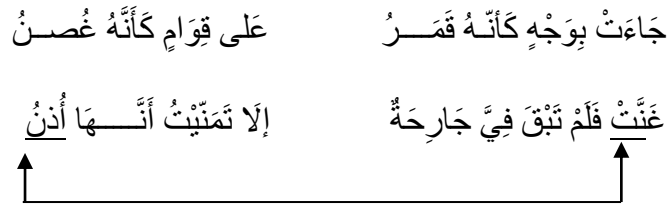 جَاءَتْ بِوَجْهٍ كَأنّـهُ قَمَــــرُ عَلى قِوَامٍ كَأَنَّهُ غُصــنُ
غَنَّتْ فَلَمْ تَبْقَ فِيَّ جَارِحَةٌ إلَا تَمَنّيْتُ أَنَّـــــهَا أُذنُ